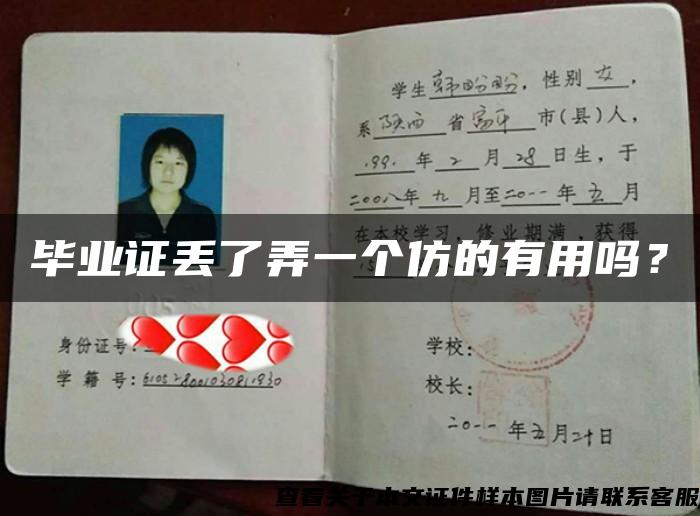 学生韩盼盼，性别女，
系陕西省富平市(县)人，
1991年2月28日生，于
二00八年九月至二0一一年五月
在本校学习，修业期满，获得
毕业证丢了弄一个仿的有用吗？
身份证号：
学籍号：
学校：
校长：
二0一一年五月二十日
查看关于本文证件样本图片请联系客服